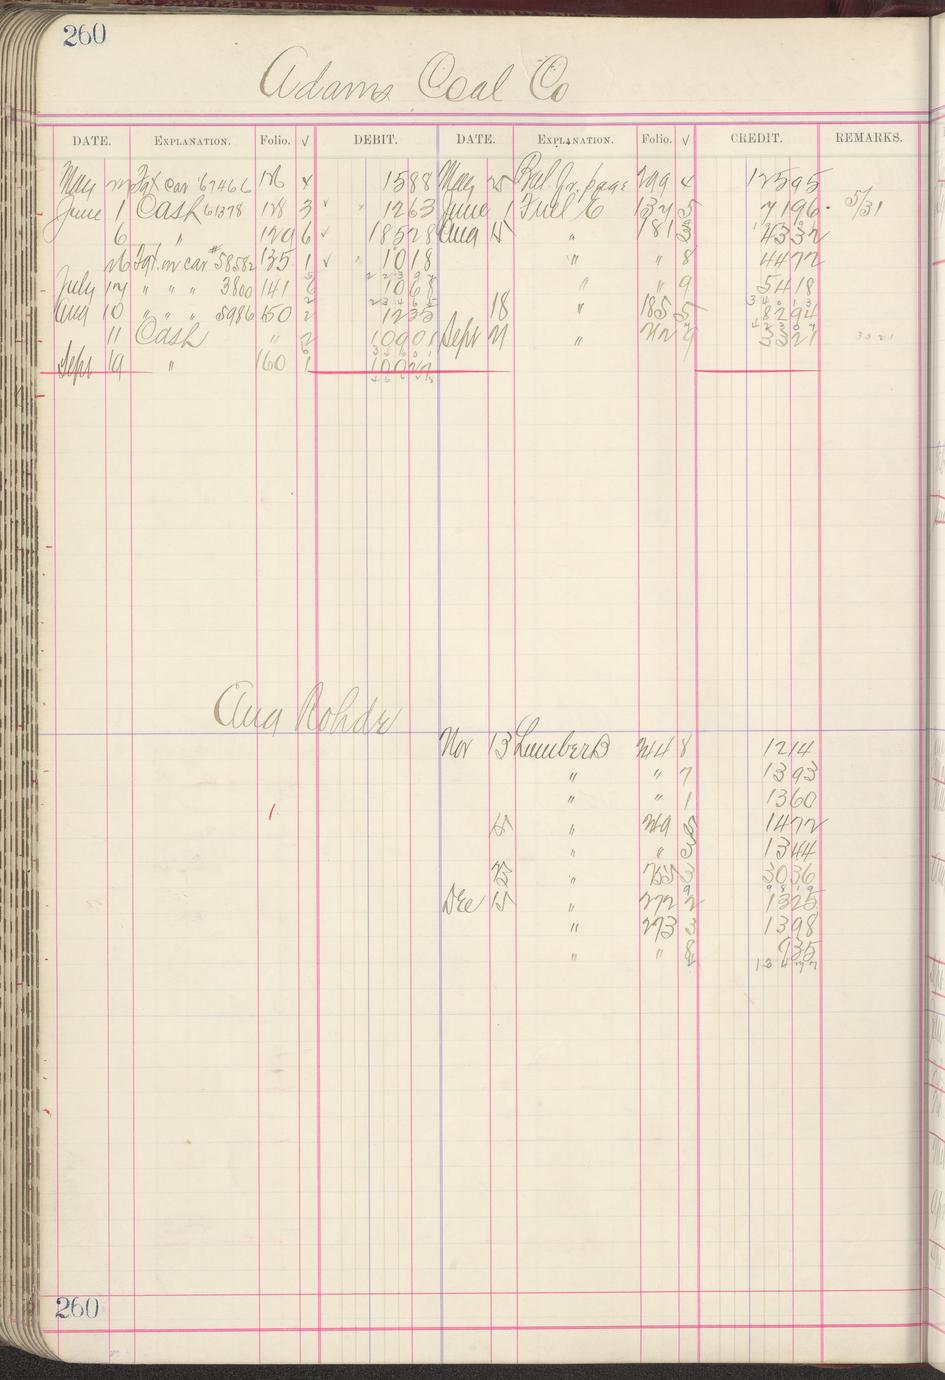 260
Adams Coal Co
DATE. EXPLANATION. Folio. √ DEBIT. DATE. EXPLANATION. Folio. √ CREDIT. REMARKS.
May Frt Car 67466 126 4 1588 May 25 Bal fr. page 299 4 12595
June 1 Cash 61378 128 3 √ 1263 June 1 Fuel C 137 5 7196 5/31
6 " 129 6 √ 18528 Aug 15 " 181 3 4332
26 Frt. on car #58582 135 1 √ 1018 " " 8 4472
July 17 " " " 3800 141 6 1068 " " 9 5418
Aug 10 " " " 5986 150 2 1235 18 " 185 5 8294
11 Cash " 2 10901 Sept 21 " 212 9 3321 3021
Sept 19 " 160 1 10027
Aug Rohde
Nov 13 Lumber B 244 8 1214
" " 7 1393
" " 1 1360
15 " 249 5 1472
" " 3 1344
23 " 255 3 3036
Dec 15 " 272 2 1325
" 273 3 1398
" " 8 935
13477
260